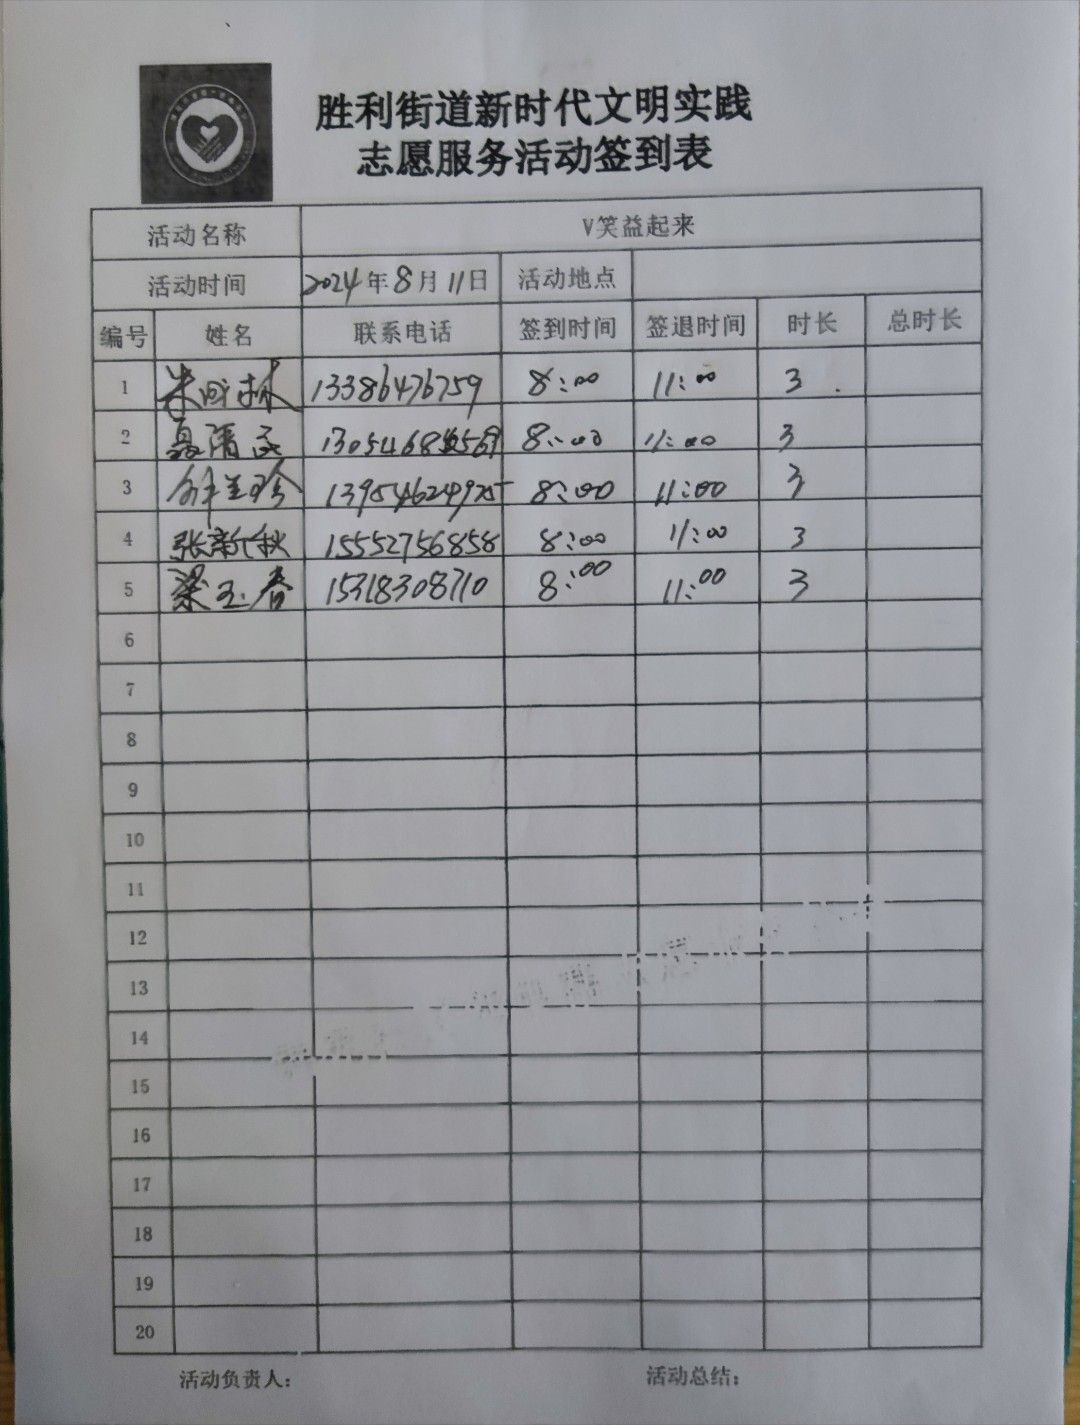 胜利街道新时代文明实践
志愿服务活动签到表
活动名称 V笑益起来
活动时间 2024年8月11日 活动地点
编号 姓名 联系电话 签到时间 签退时间 时长 总时长
1 13386476759 8:00 11:00 3
2 8:00 11:00 3
3 13954624925 8:00 11:00 3
4 张新秋 15552756858 8:00 11:00 3
5 梁玉春 15318308710 8:00 11:00 3
6
7
8
9
10
11
12
13
14
15
16
17
18
19
20
活动负责人: 活动总结: